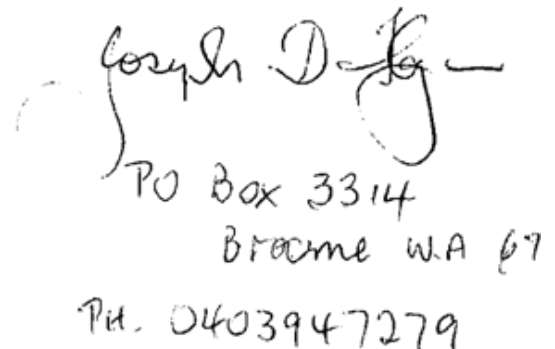 Joseph D.
PO Box 3314
Broome W.A 67
PH. 0403947279